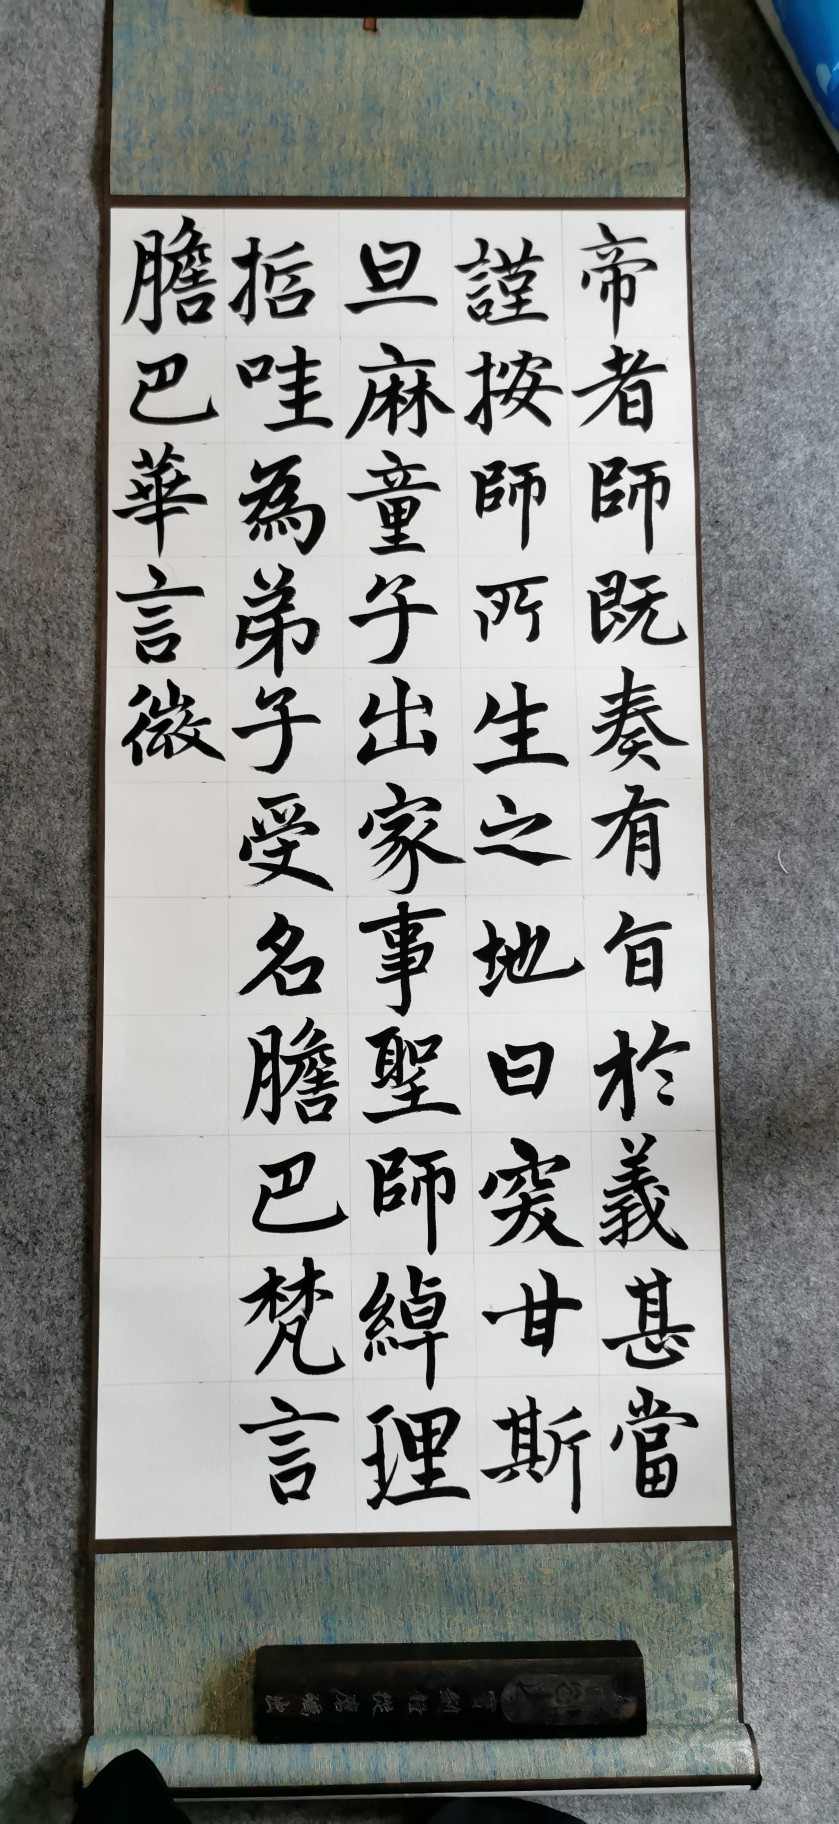 帝者師既奏有旨於義甚當
謹按師所生之地曰突甘斯
旦麻童子出家事聖師綽理
哲哇為弟子受名膽巴梵言
膽巴華言微